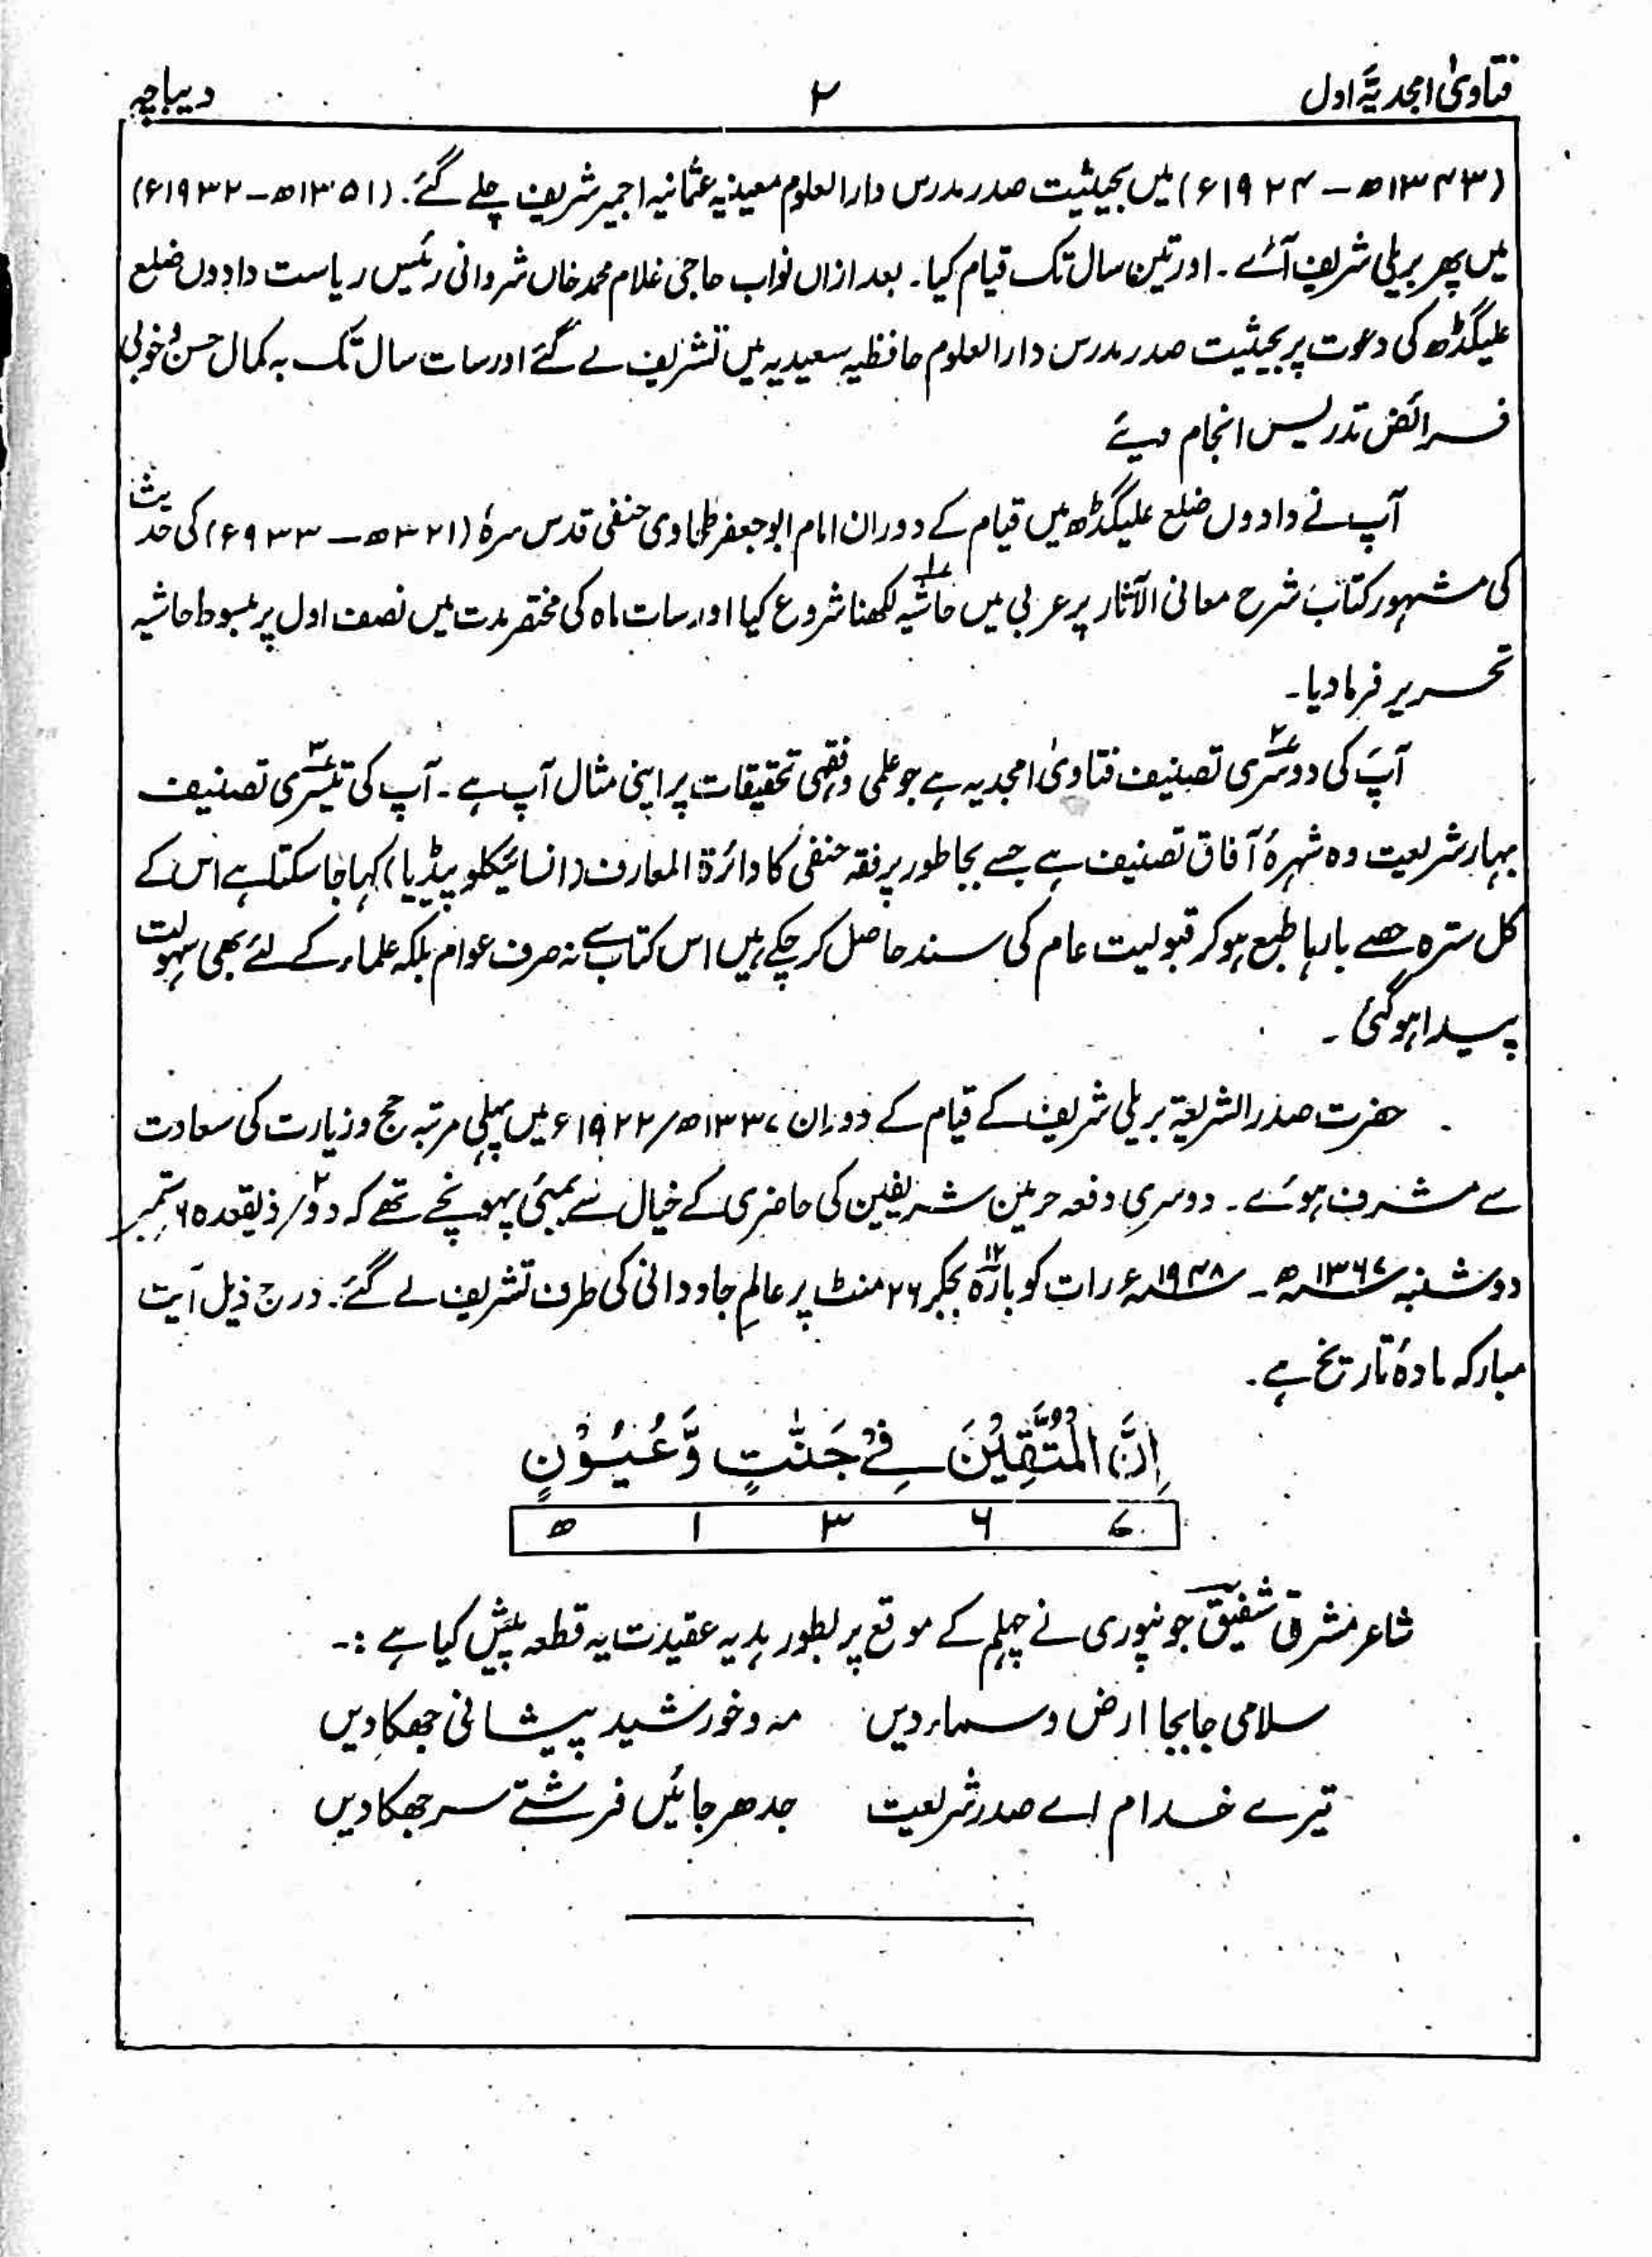 فتاویٰ امجدیہ اول ۲ دیباچہ
(۱۳۴۳ھ – ۱۹۲۴ء) میں بحیثیت صدر مدرس دارالعلوم معینیہ عثمانیہ اجمیر شریف چلے گئے۔ (۱۳۵۱ھ – ۱۹۳۲ء)
میں پھر بریلی شریف آئے۔ اور تین سال تک قیام کیا۔ بعد ازاں نواب حاجی غلام محمد خاں شروانی رئیس ریاست دادوں ضلع
علیگڈھ کی دعوت پر بحیثیت صدر مدرس دارالعلوم حافظیہ سعیدیہ میں تشریف لے گئے اور سات سال تک بہ کمال حسن و خوبی
فرائض تدریس انجام دیئے
آپ نے دادوں ضلع علیگڈھ میں قیام کے دوران امام ابوجعفر طحاوی حنفی قدس سرہٗ (۳۲۱ھ – ۹۳۳ء) کی حدیث
کی مشہور کتاب شرح معانی الآثار پر عربی میں حاشیہ ۱ لکھنا شروع کیا اور سات ماہ کی مختصر مدت میں نصف اول پر مبسوط حاشیہ
تحریر فرما دیا۔
آپ کی دوسری ۲ تصنیف فتاویٰ امجدیہ ہے جو علمی و فقہی تحقیقات پر اپنی مثال آپ ہے۔ آپ کی تیسری ۳ تصنیف
بہار شریعت وہ شہرۂ آفاق تصنیف ہے جسے بجا طور پر فقہ حنفی کا دائرۃ المعارف (انسائیکلوپیڈیا) کہا جا سکتا ہے اس کے
کل سترہ حصے بارہا طبع ہو کر قبولیت عام کی سند حاصل کر چکے ہیں اس کتاب سے نہ صرف عوام بلکہ علماء کے لئے بھی سہولت
پیدا ہو گئی۔
حضرت صدر الشریعۃ بریلی شریف کے قیام کے دوران ۱۳۳۷ھ/۱۹۲۲ء میں پہلی مرتبہ حج و زیارت کی سعادت
سے مشرف ہوئے۔ دوسری دفعہ حرمین شریفین کی حاضری کے خیال سے بمبئی پہونچے تھے کہ دو ۲؍ ذیقعدہ ۶ ستمبر
دوشنبہ ۱۳۶۷ھ – ۱۹۴۸ء رات کو بارہ ۱۲ بجکر ۲۶ منٹ پر عالمِ جاودانی کی طرف تشریف لے گئے۔ درج ذیل آیت
مبارکہ مادۂ تاریخ ہے۔
اِنَّ الْمُتَّقِیْنَ فِیْ جَنّٰتٍ وَّعُیُوْنٍ
۷ ۶ ۳ ۱ ھ
شاعر مشرق شفیق جونپوری نے چہلم کے موقع پر بطور ہدیہ عقیدت یہ قطعہ پیش کیا ہے :۔
سلامی جابجا ارض و سماء دیں مہ و خورشید پیشانی جھکا دیں
تیرے خدام اے صدر شریعت جدھر جائیں فرشتے سر جھکا دیں